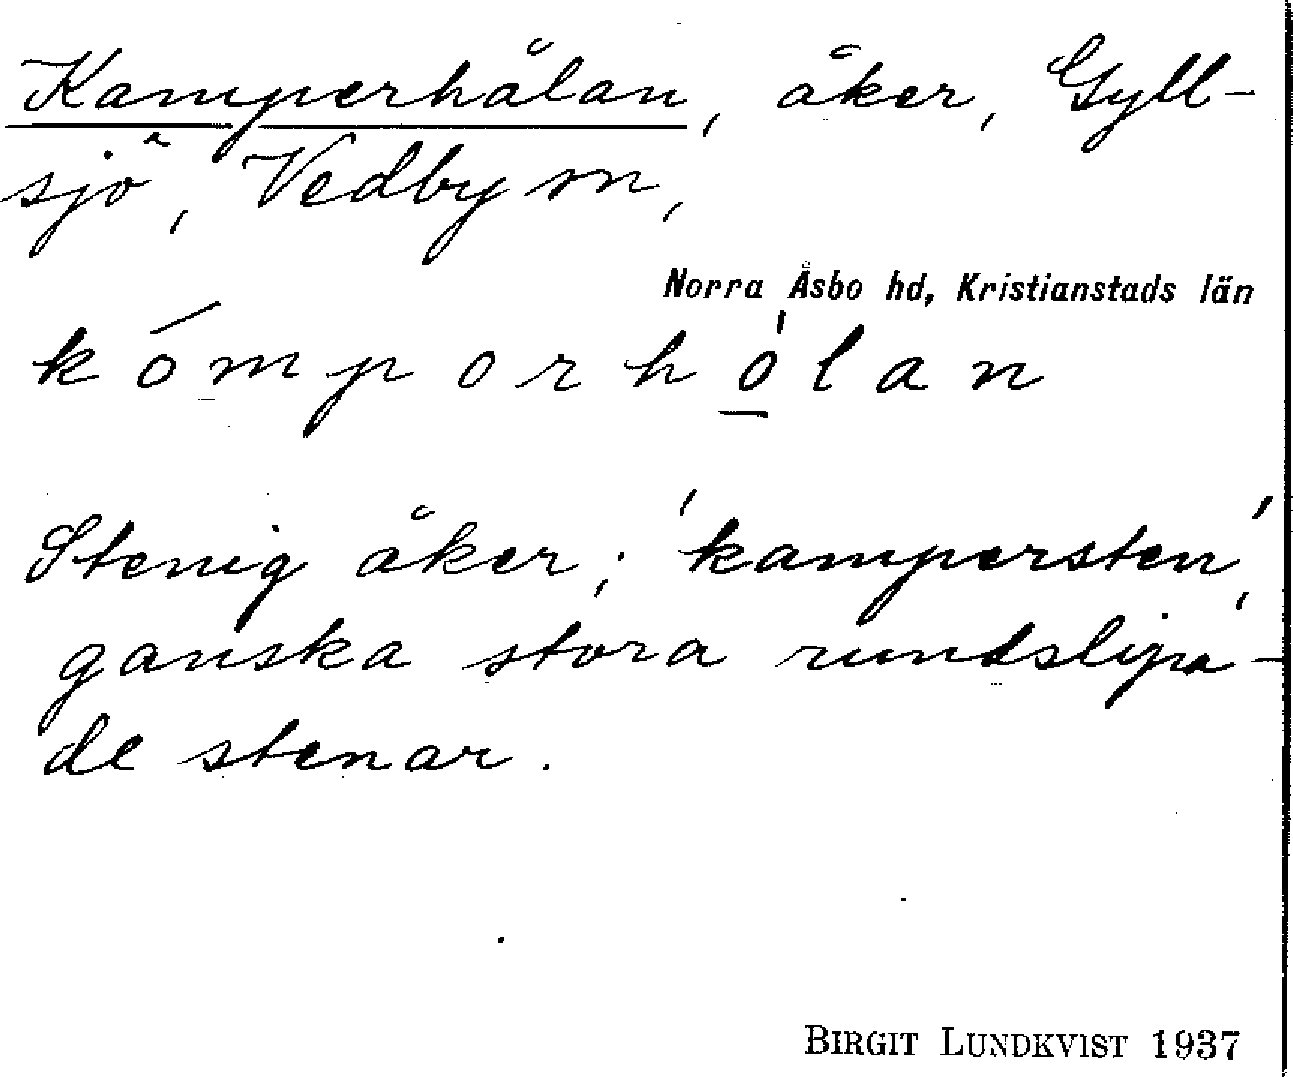 Kamperhålan, åker, Gyll-
sjö, Vedby sn,
Norra Åsbo hd, Kristianstads län
kómporhó̱lan
Stenig åker; 'kampersten',
ganska stora rundslipa-
de stenar.
BIRGIT LUNDKVIST 1937